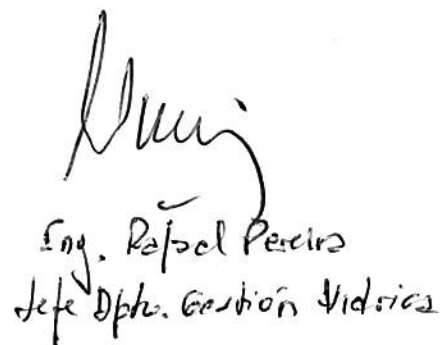 Ing. Rafael Pereira
Jefe Dpto. Gestión Hídrica